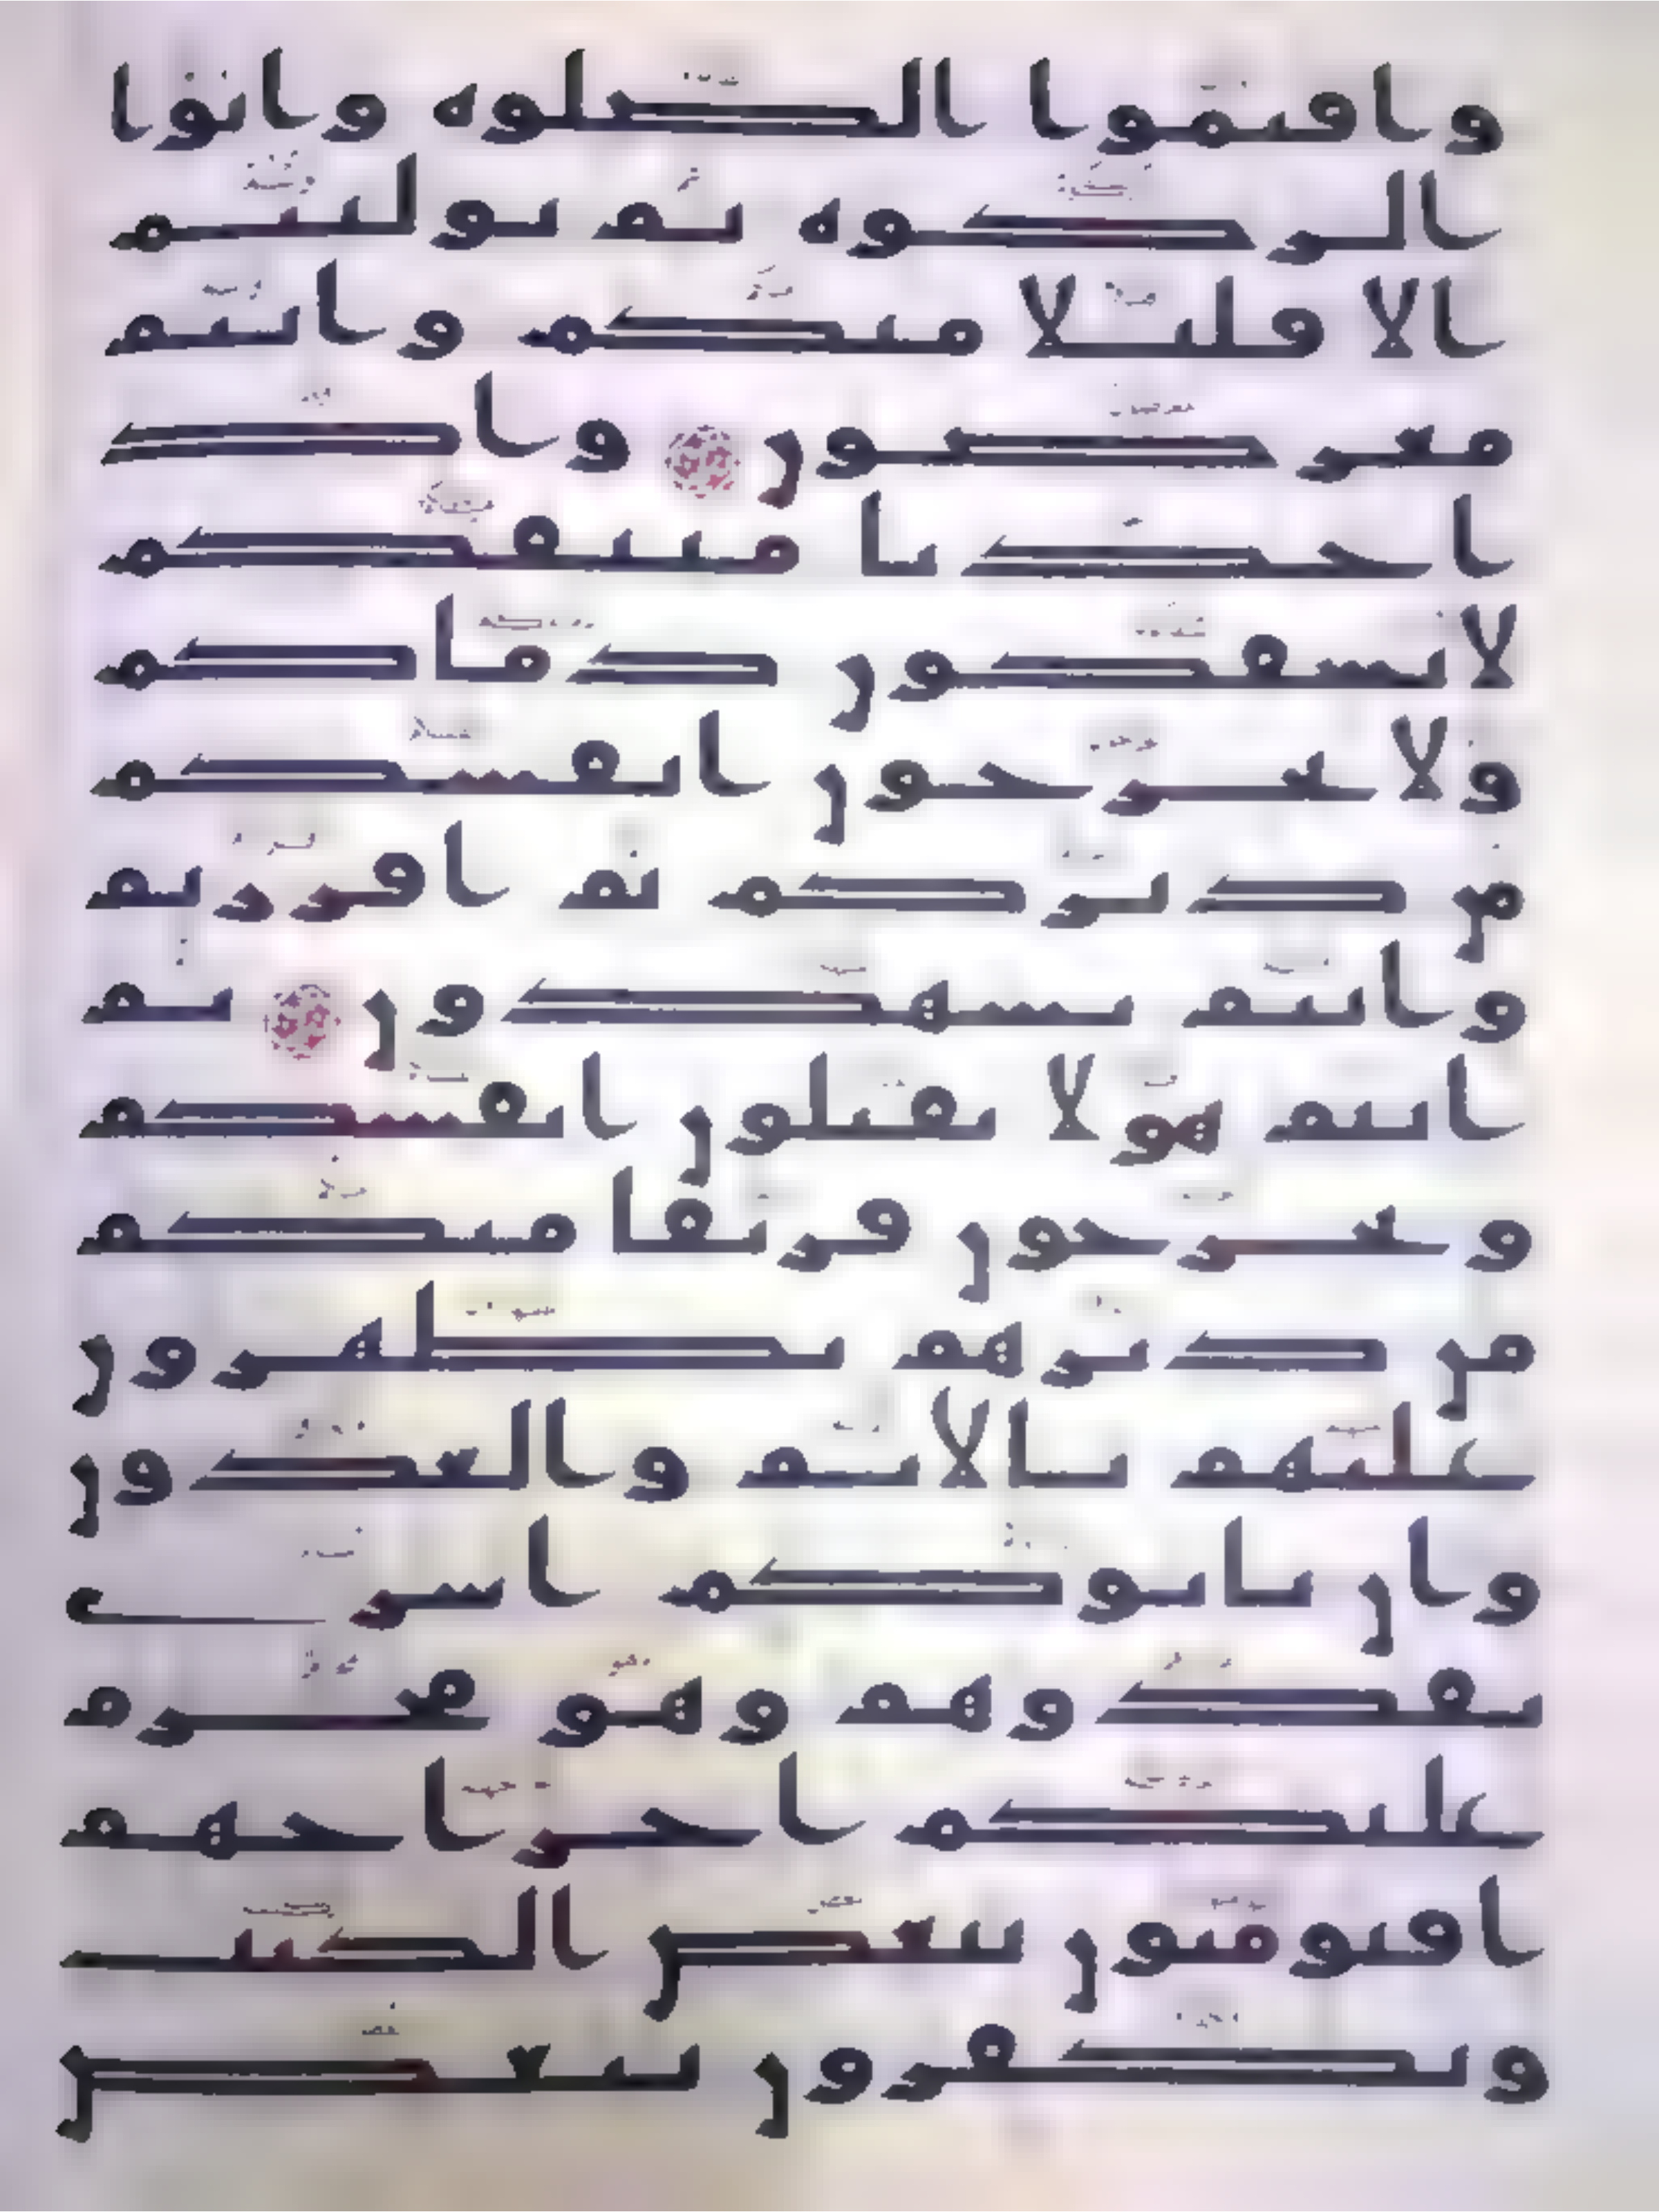 واقيموا الصلوه واتوا
الزكوه ثم توليتم
الا قليلا منكم وانتم
معرضون واذ
اخذنا ميثقكم
لا تسفكون دماكم
ولا تخرجون انفسكم
من ديركم ثم اقررتم
وانتم تشهدون ثم
انتم هولا تقتلون انفسكم
وتخرجون فريقا منكم
من ديرهم تظهرون
عليهم بالاثم والعدون
وان ياتوكم اسرى
تفدوهم وهو محرم
عليكم اخراجهم
افتومنون ببعض الكتب
وتكفرون ببعض